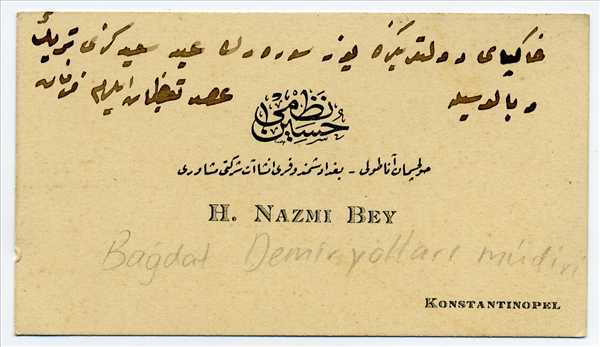 خاکپای دولتلریکزه یوز سوره رك عید سعیدکزی تبریك
و بالوسیله عرض تعظیمات ایلرم
حسین نظمی
آناطولی - بغداد شمندوفری انشاآت شرکتی مشاوری
H. NAZMI BEY
Bağdat Demiryolları müdiri
KONSTANTINOPEL